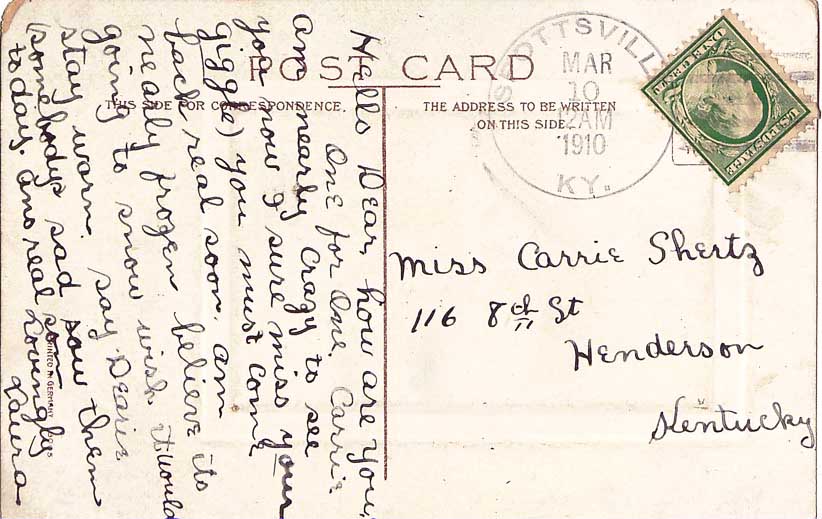 POST CARD
THIS SIDE FOR CORRESPONDENCE.
THE ADDRESS TO BE WRITTEN
ON THIS SIDE.
SCOTTSVILLE
MAR
10
12AM
1910
KY.
U.S. POSTAGE
Miss Carrie Shertz
116 8th St
Henderson
Kentucky
Hello Dear, how are you,
One for One. Carrie
am nearly crazy to see
you now I sure miss your
giggle) you must come
back real soon. am
nearly frozen believe its
going to snow wish it would
stay warm. say Dearie
(somebodys sad sow them
today. ans real soon
Lovingly
Laura
PRINTED IN GERMANY